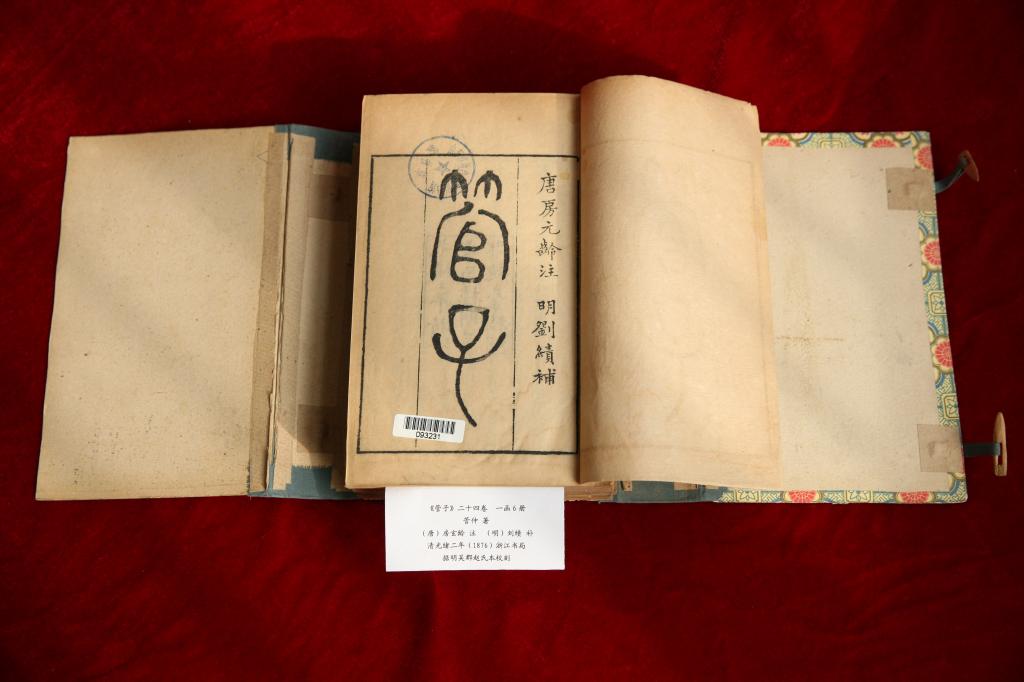 管子
唐房元齡注 明劉績補
093231
《管子》二十四卷 一函6册
管仲 著
(唐)房玄龄 注 (明)刘绩 补
清光绪二年(1876)浙江书局
据明吴郡赵氏本校刻